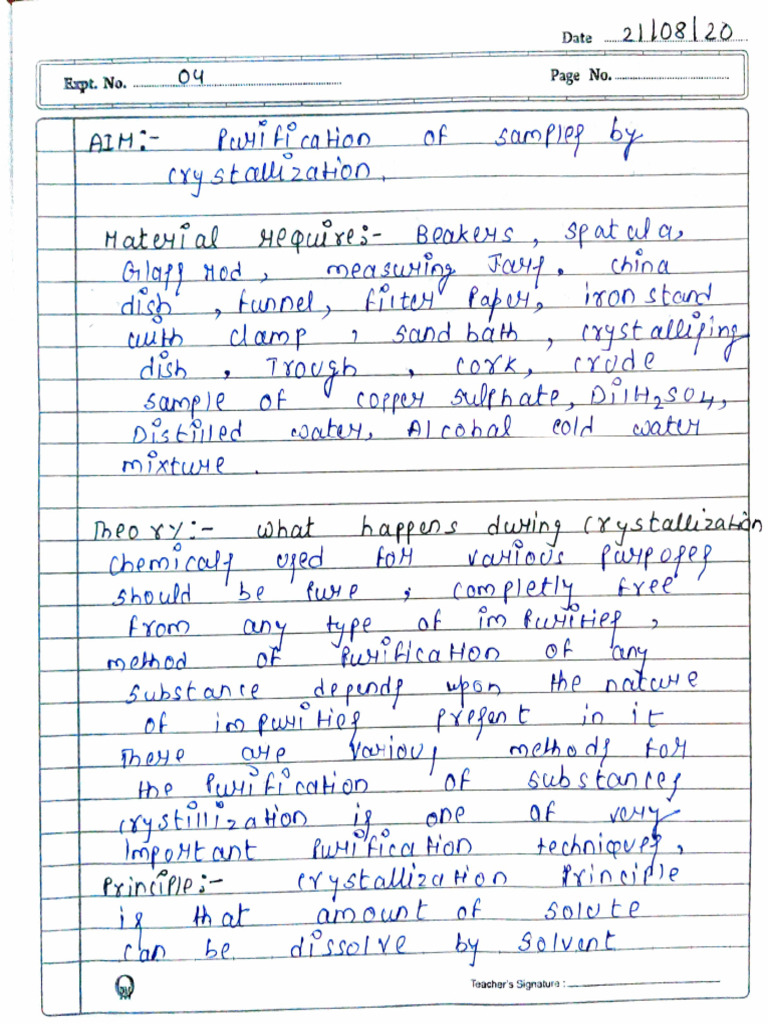 Date 21/08/20
Expt. No. 04 Page No.
AIM:- Purification of samples by
crystallization.
Material require:- Beakers, spatula,
Glass rod, measuring Jars, china
dish, funnel, filter Paper, iron stand
with clamp, sand bath, crystallising
dish, Trough, cork, crude
sample of copper sulphate, Dil H2SO4,
Distilled water, Alcohal cold water
mixture.
Theory:- what happens during crystallization
chemicals used for various purposes
should be pure, completly free
from any type of impurities,
method of purification of any
substance depends upon the nature
of impurities present in it
There are various methods for
the Purification of substances
crystillization is one of very
Important Purification techniques,
Principle:- crystallization Principle
is that amount of solute
can be dissolve by solvent
Teacher's Signature :